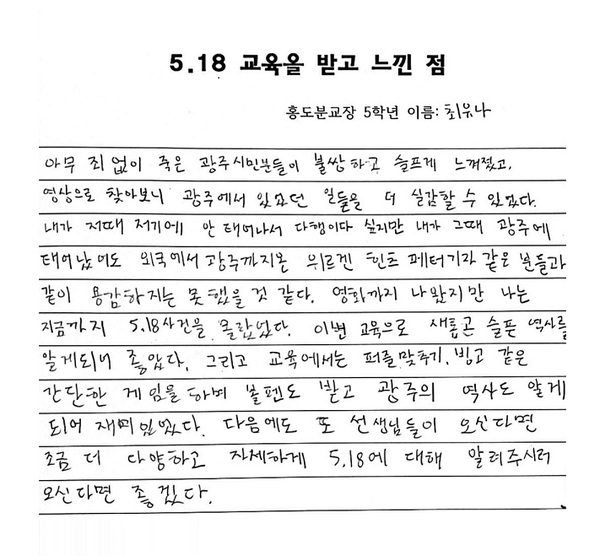 5.18 교육을 받고 느낀 점
홍도분교장 5학년 이름: 최유나
아무 죄 없이 죽은 광주시민분들이 불쌍하고 슬프게 느껴졌고,
영상으로 찾아보니 광주에서 있었던 일들을 더 실감할 수 있었다.
내가 저때 저기에 안 태어나서 다행이다 싶지만 내가 그때 광주에
태어났어도 외국에서 광주까지온 위르겐 힌츠 페터기자 같은 분들과
같이 용감하지는 못했을 것 같다. 영화까지 나왔지만 나는
지금까지 5.18사건을 몰랐었다. 이번 교육으로 새롭곤 슬픈 역사를
알게되어 좋았다. 그리고 교육에서는 퍼즐맞추기, 빙고 같은
간단한 게임을하며 볼펜도 받고 광주의 역사도 알게
되어 재미있었다. 다음에도 또 선생님들이 오신다면
조금 더 다양하고 자세하게 5.18에 대해 알려주시러
오신다면 좋겠다.